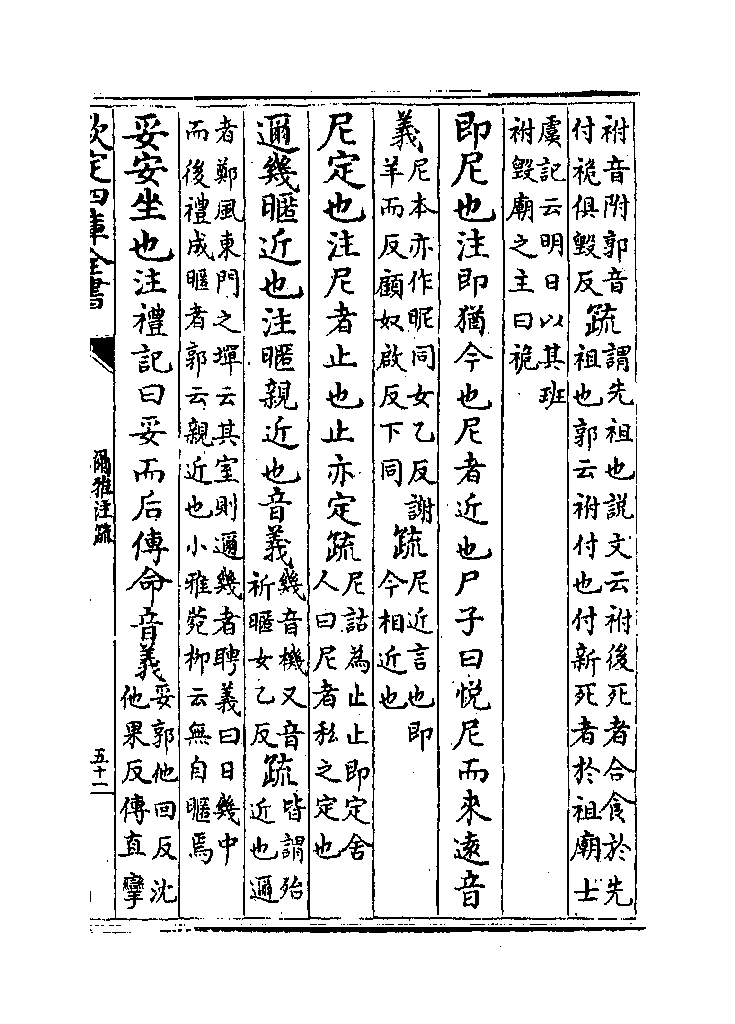 祔音附郭音
付祪俱毁反
疏
謂先祖也説文云祔後死者合食於先
祖也郭云祔付也付新死者於祖廟士
虞記云明日以其班
祔毁廟之主曰祪
即尼也注即猶今也尼者近也尸子曰悦尼而來逺音
義
尼本亦作昵同女乙反謝
羊而反顧奴啟反下同
疏
尼近言也即
今相近也
尼定也注尼者止也止亦定疏
尼詁為止止即定舍
人曰尼者私之定也
邇幾暱近也注暱親近也音義
幾音機又音
祈暱女乙反
疏
皆謂殆
近也邇
者鄭風東門之墠云其室則邇幾者聘義曰日幾中
而後禮成暱者郭云親近也小雅菀柳云無自暱焉
妥安坐也注禮記曰妥而后傳命音義
妥郭他回反沈
他果反傳直攣
欽定四庫全書
爾雅注疏
五十一